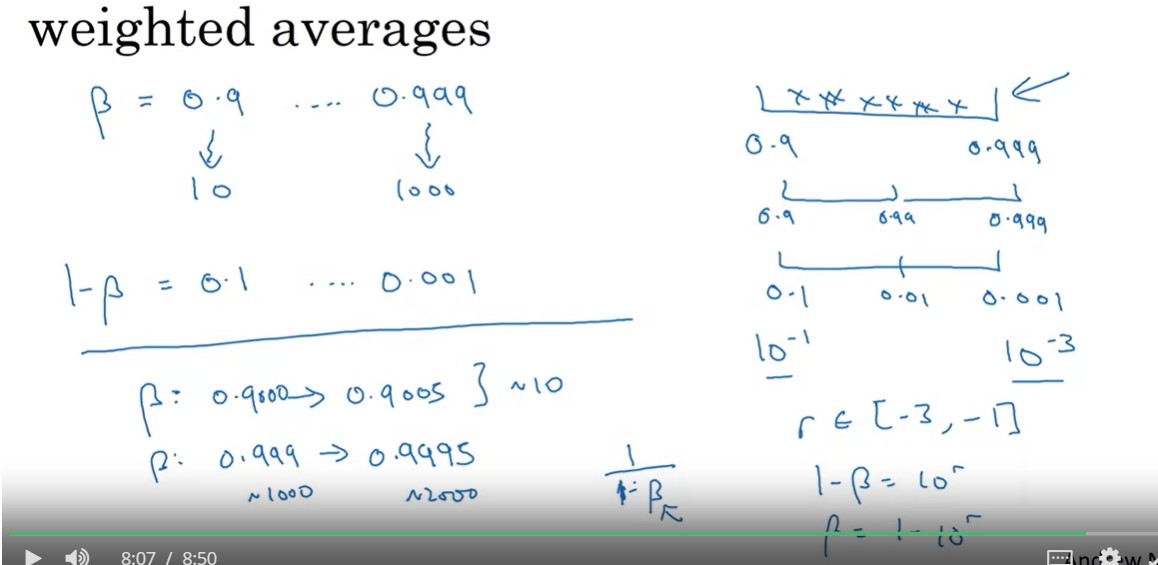 weighted averages
β = 0.9 .... 0.999
10 1000
1-β = 0.1 .... 0.001
β: 0.9000 → 0.9005 } ~10
β: 0.999 → 0.9995
~1000 ~2000
1
1-β
0.9 0.999
0.9 0.99 0.999
0.1 0.01 0.001
10⁻¹ 10⁻³
r ∈ [-3, -1]
1-β = 10ʳ
β = 1- 10ʳ
8:07 / 8:50